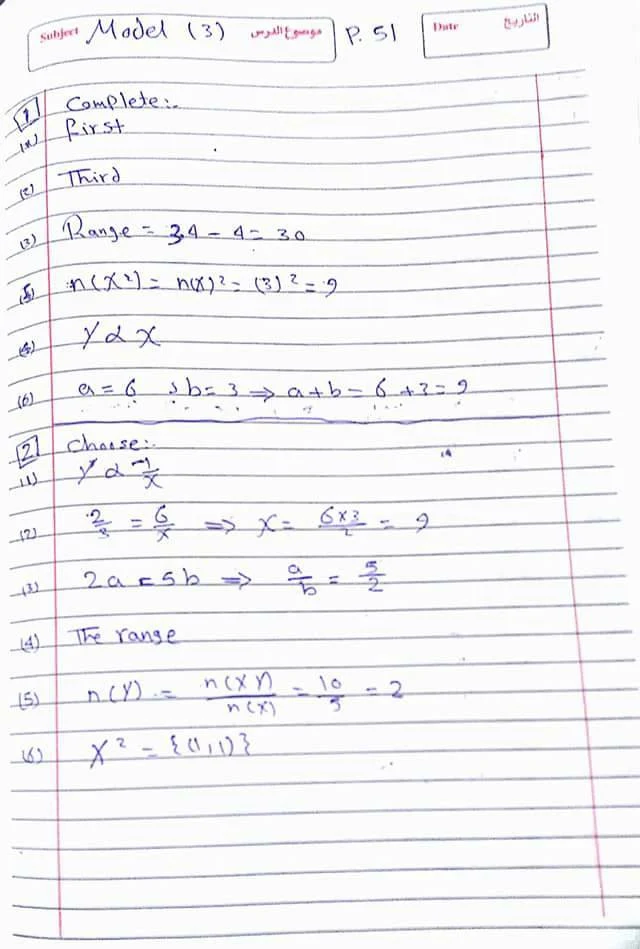 Subject Model (3) موضوع الدرس P. 51 Date التاريخ
1 Complete:-
(1) first
(2) Third
(3) Range = 34 - 4 = 30
(4) n(X²) = n(X)² = (3)² = 9
(5) Y α X
(6) a = 6 , b = 3 ⇒ a + b = 6 + 3 = 9
2 Choose:-
(1) Y α 1/X
(2) 2/3 = 6/x ⇒ x = 6×3/2 = 9
(3) 2a = 5b ⇒ a/b = 5/2
(4) The range
(5) n(Y) = n(XY)/n(X) = 10/5 = 2
(6) X² = {(1,1)}